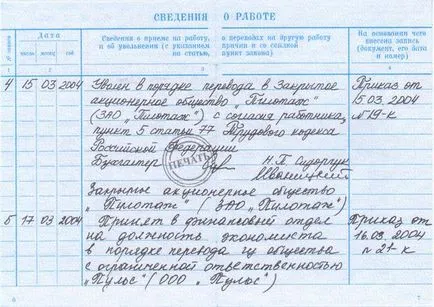 СВЕДЕНИЯ О РАБОТЕ
№ записи
Дата
число
мес.
год
Сведения о приеме на работу,
и об увольнении (с указанием
на статью,
о переводах на другую работу
причин и со ссылкой
пункт закона)
На основании чего
внесена запись
(документ, его дата и
номер)
1 2 3 4
4 15 03 2004 Уволен в порядке перевода в Закрытое Приказ от
акционерное общество „Пилотаж" 15.03.2004
(ЗАО „Пилотаж") с согласия работника, №19-к
пункт 5 статьи 77 Трудового кодекса
Российской Федерации
Бухгалтер Н.П. Сидорчук
ПЕЧАТЬ
Закрытое акционерное общество
„Пилотаж" (ЗАО „Пилотаж")
5 17 03 2004 Принят в финансовый отдел Приказ от
на должность экономиста 16.03.2004
в порядке перевода из общества №21-к
с ограниченной ответственностью
„Пульс" (ООО „Пульс")
6 7